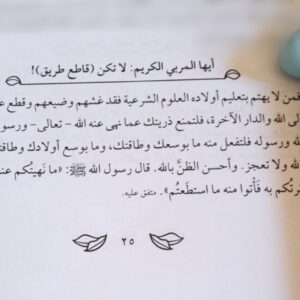 أيها المربي الكريم: لا تكن (قاطع طريق)!
فمن لا يهتم بتعليم أولاده العلوم الشرعية فقد غشهم وضيعهم وقطع
الله والدار الآخرة، فلتمنع ذريتك عما نهى عنه الله - تعالى- ورسو
الله ورسوله فلتفعل منه ما بوسعك وطاقتك، وما بوسع أولادك وطاقت
الله ولا تعجز. وأحسن الظنَّ بالله. قال رسول الله ﷺ: «ما نَهيتُكم عن
رتُكم به فَأتوا منه ما استَطَعتُم». متفق عليه.
٢٥